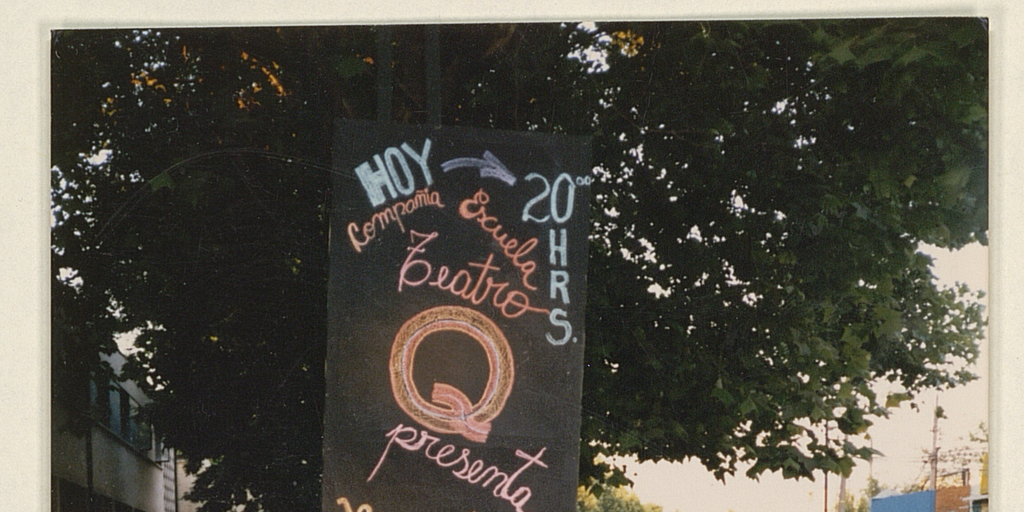 HOY → 20⁰⁰ HRS.
Compañia Escuela
Teatro
Q
presenta